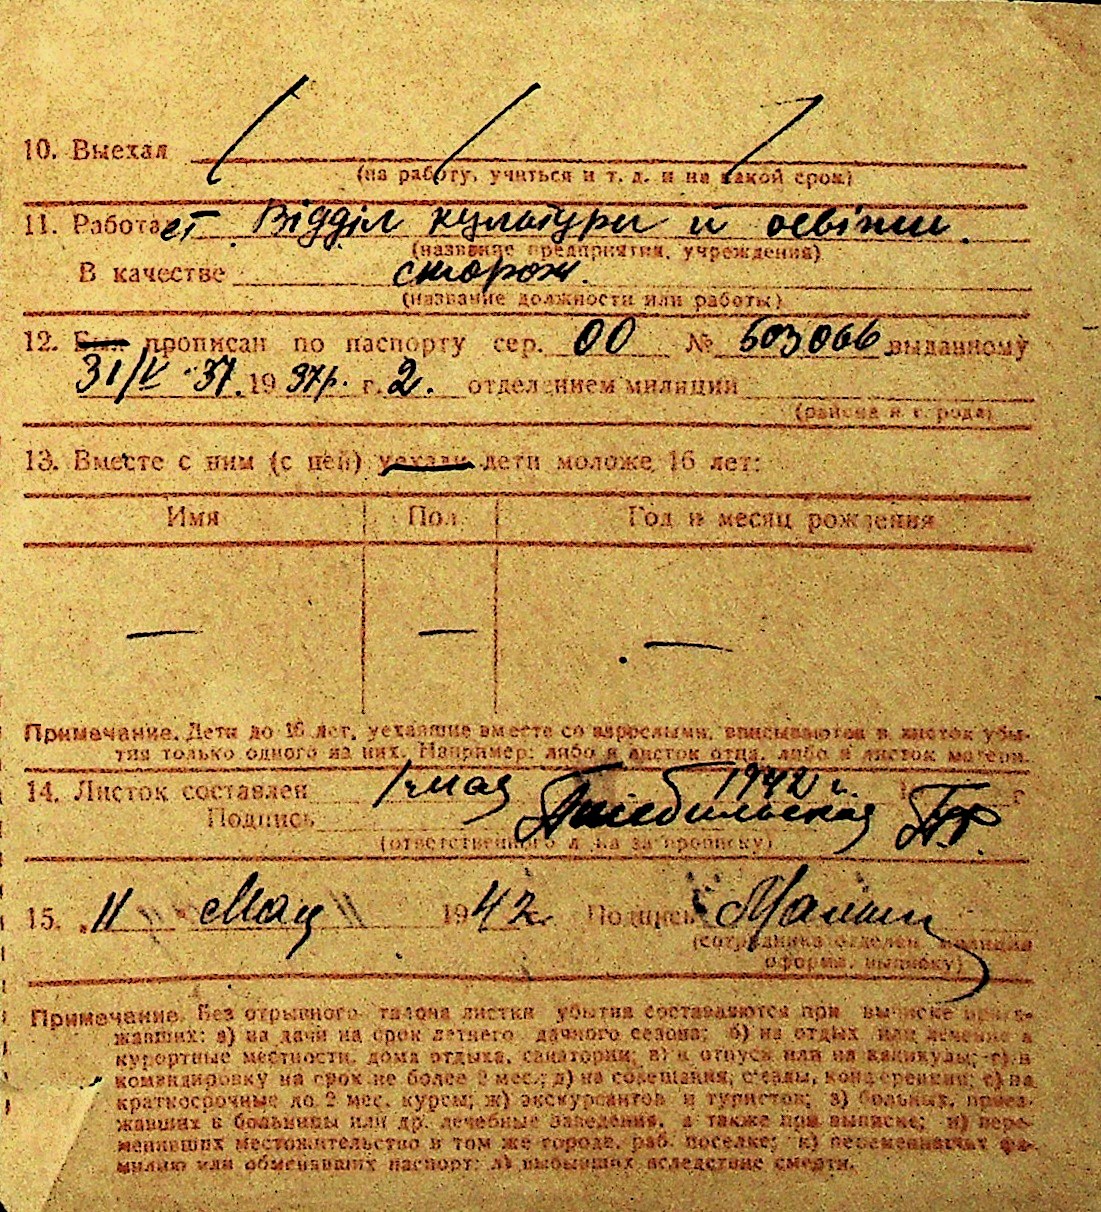 10. Выехал
(на работу, учиться и т. д. и на какой срок)
11. Работает Відділ культури й освіти.
(название предприятия, учреждения)
В качестве сторож.
(название должности или работы)
12. Был прописан по паспорту сер. 00 № 503066 выданному
31/V-37. 19 37р. г. 2. отделением милиции
(района и города)
13. Вместе с ним (с ней) уехали дети моложе 16 лет:
Имя Пол Год и месяц рождения
— — —
Примечание. Дети до 16 лет, уехавшие вместе со взрослыми, вписываются в листок убы-
тия только одного из них. Например: либо в листок отца, либо в листок матери.
14. Листок составлен 1 мая 1942 г. г
Подпись
(ответственного лица за прописку)
15. „11" мая 1942 Подпись
(сотрудника отделен. милиции
оформ. выписку)
Примечание. Без отрывного талона листки убытия составляются при выписке приез-
жавших: а) на дачи на срок летнего дачного сезона; б) на отдых или лечение в
курортные местности, дома отдыха, санатории; в) в отпуск или на каникулы; г) в
командировку на срок не более 2 мес.; д) на совещания, съезды, конференции; е) на
краткосрочные до 2 мес. курсы; ж) экскурсантов и туристов; з) больных, приез-
жавших в больницы или др. лечебные заведения, а также при выписке; и) пере-
менивших местожительство в том же городе, раб. поселке; к) переменивших фа-
милию или обменявших паспорт; л) выбывших вследствие смерти.